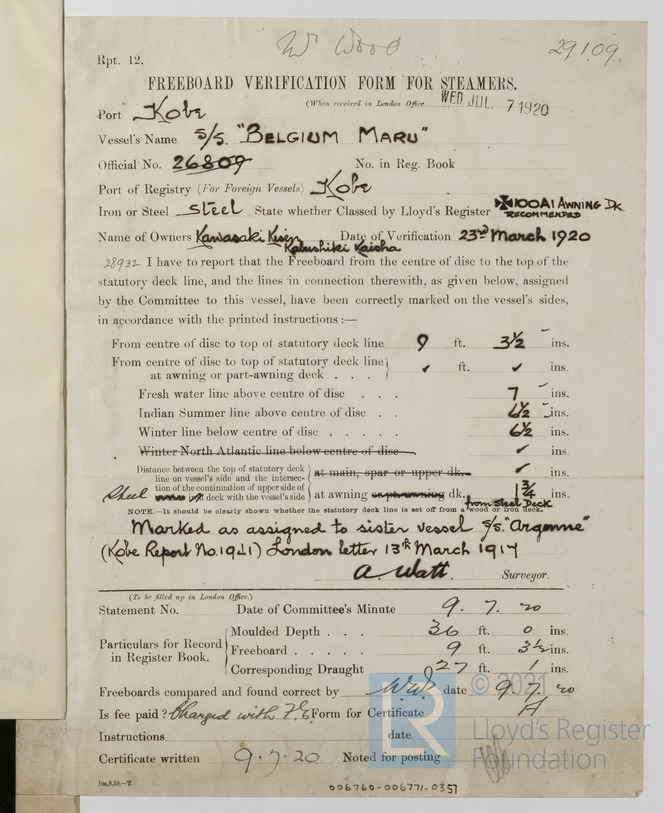 Mr Wood
29109.
Rpt. 12.
FREEBOARD VERIFICATION FORM FOR STEAMERS.
(When received in London Office WED JUL. 7 1920
Port Kobe
Vessel's Name S/S. "BELGIUM MARU"
Official No. 26809 No. in Reg. Book
Port of Registry (For Foreign Vessels) Kobe
Iron or Steel Steel State whether Classed by Lloyd's Register ✠100A1 AWNING DK. RECOMMENDED
Name of Owners Kawasaki Kisen Kabushiki Kaisha Date of Verification 23rd March 1920
28932 I have to report that the Freeboard from the centre of disc to the top of the
statutory deck line, and the lines in connection therewith, as given below, assigned
by the Committee to this vessel, have been correctly marked on the vessel's sides,
in accordance with the printed instructions :—
From centre of disc to top of statutory deck line 9 ft. 3½ ins.
From centre of disc to top of statutory deck line
at awning or part-awning deck . . . ✓ ft. ✓ ins.
Fresh water line above centre of disc . . . 7 ins.
Indian Summer line above centre of disc . . 6½ ins.
Winter line below centre of disc . . . . . 6½ ins.
Winter North Atlantic line below centre of disc ✓ ins.
Distance between the top of statutory deck
line on vessel's side and the intersec-
tion of the continuation of upper side of
Steel deck with the vessel's side
at main, spar or upper dk. ✓ ins.
at awning or part awning dk. 1¾ ins.
from Steel Deck
NOTE.—It should be clearly shown whether the statutory deck line is set off from a wood or iron deck.
Marked as assigned to sister vessel S/S. "Argonne"
(Kobe Report No. 1941) London letter 13th March 1917
A. Watt. Surveyor.
(To be filled up in London Office.)
Statement No. Date of Committee's Minute 9. 7. 20
Particulars for Record
in Register Book.
Moulded Depth . . . 36 ft. 0 ins.
Freeboard . . . . . 9 ft. 3½ ins.
Corresponding Draught 27 ft. 1 ins.
Freeboards compared and found correct by W.W. date 9. 7. 20
Is fee paid ? Charged with F.E. Form for Certificate A
Instructions date
Certificate written 9. 7. 20 Noted for posting
1m,8,19.—T.
006760-006771-0357
© 2021
LR
Lloyd's Register
Foundation